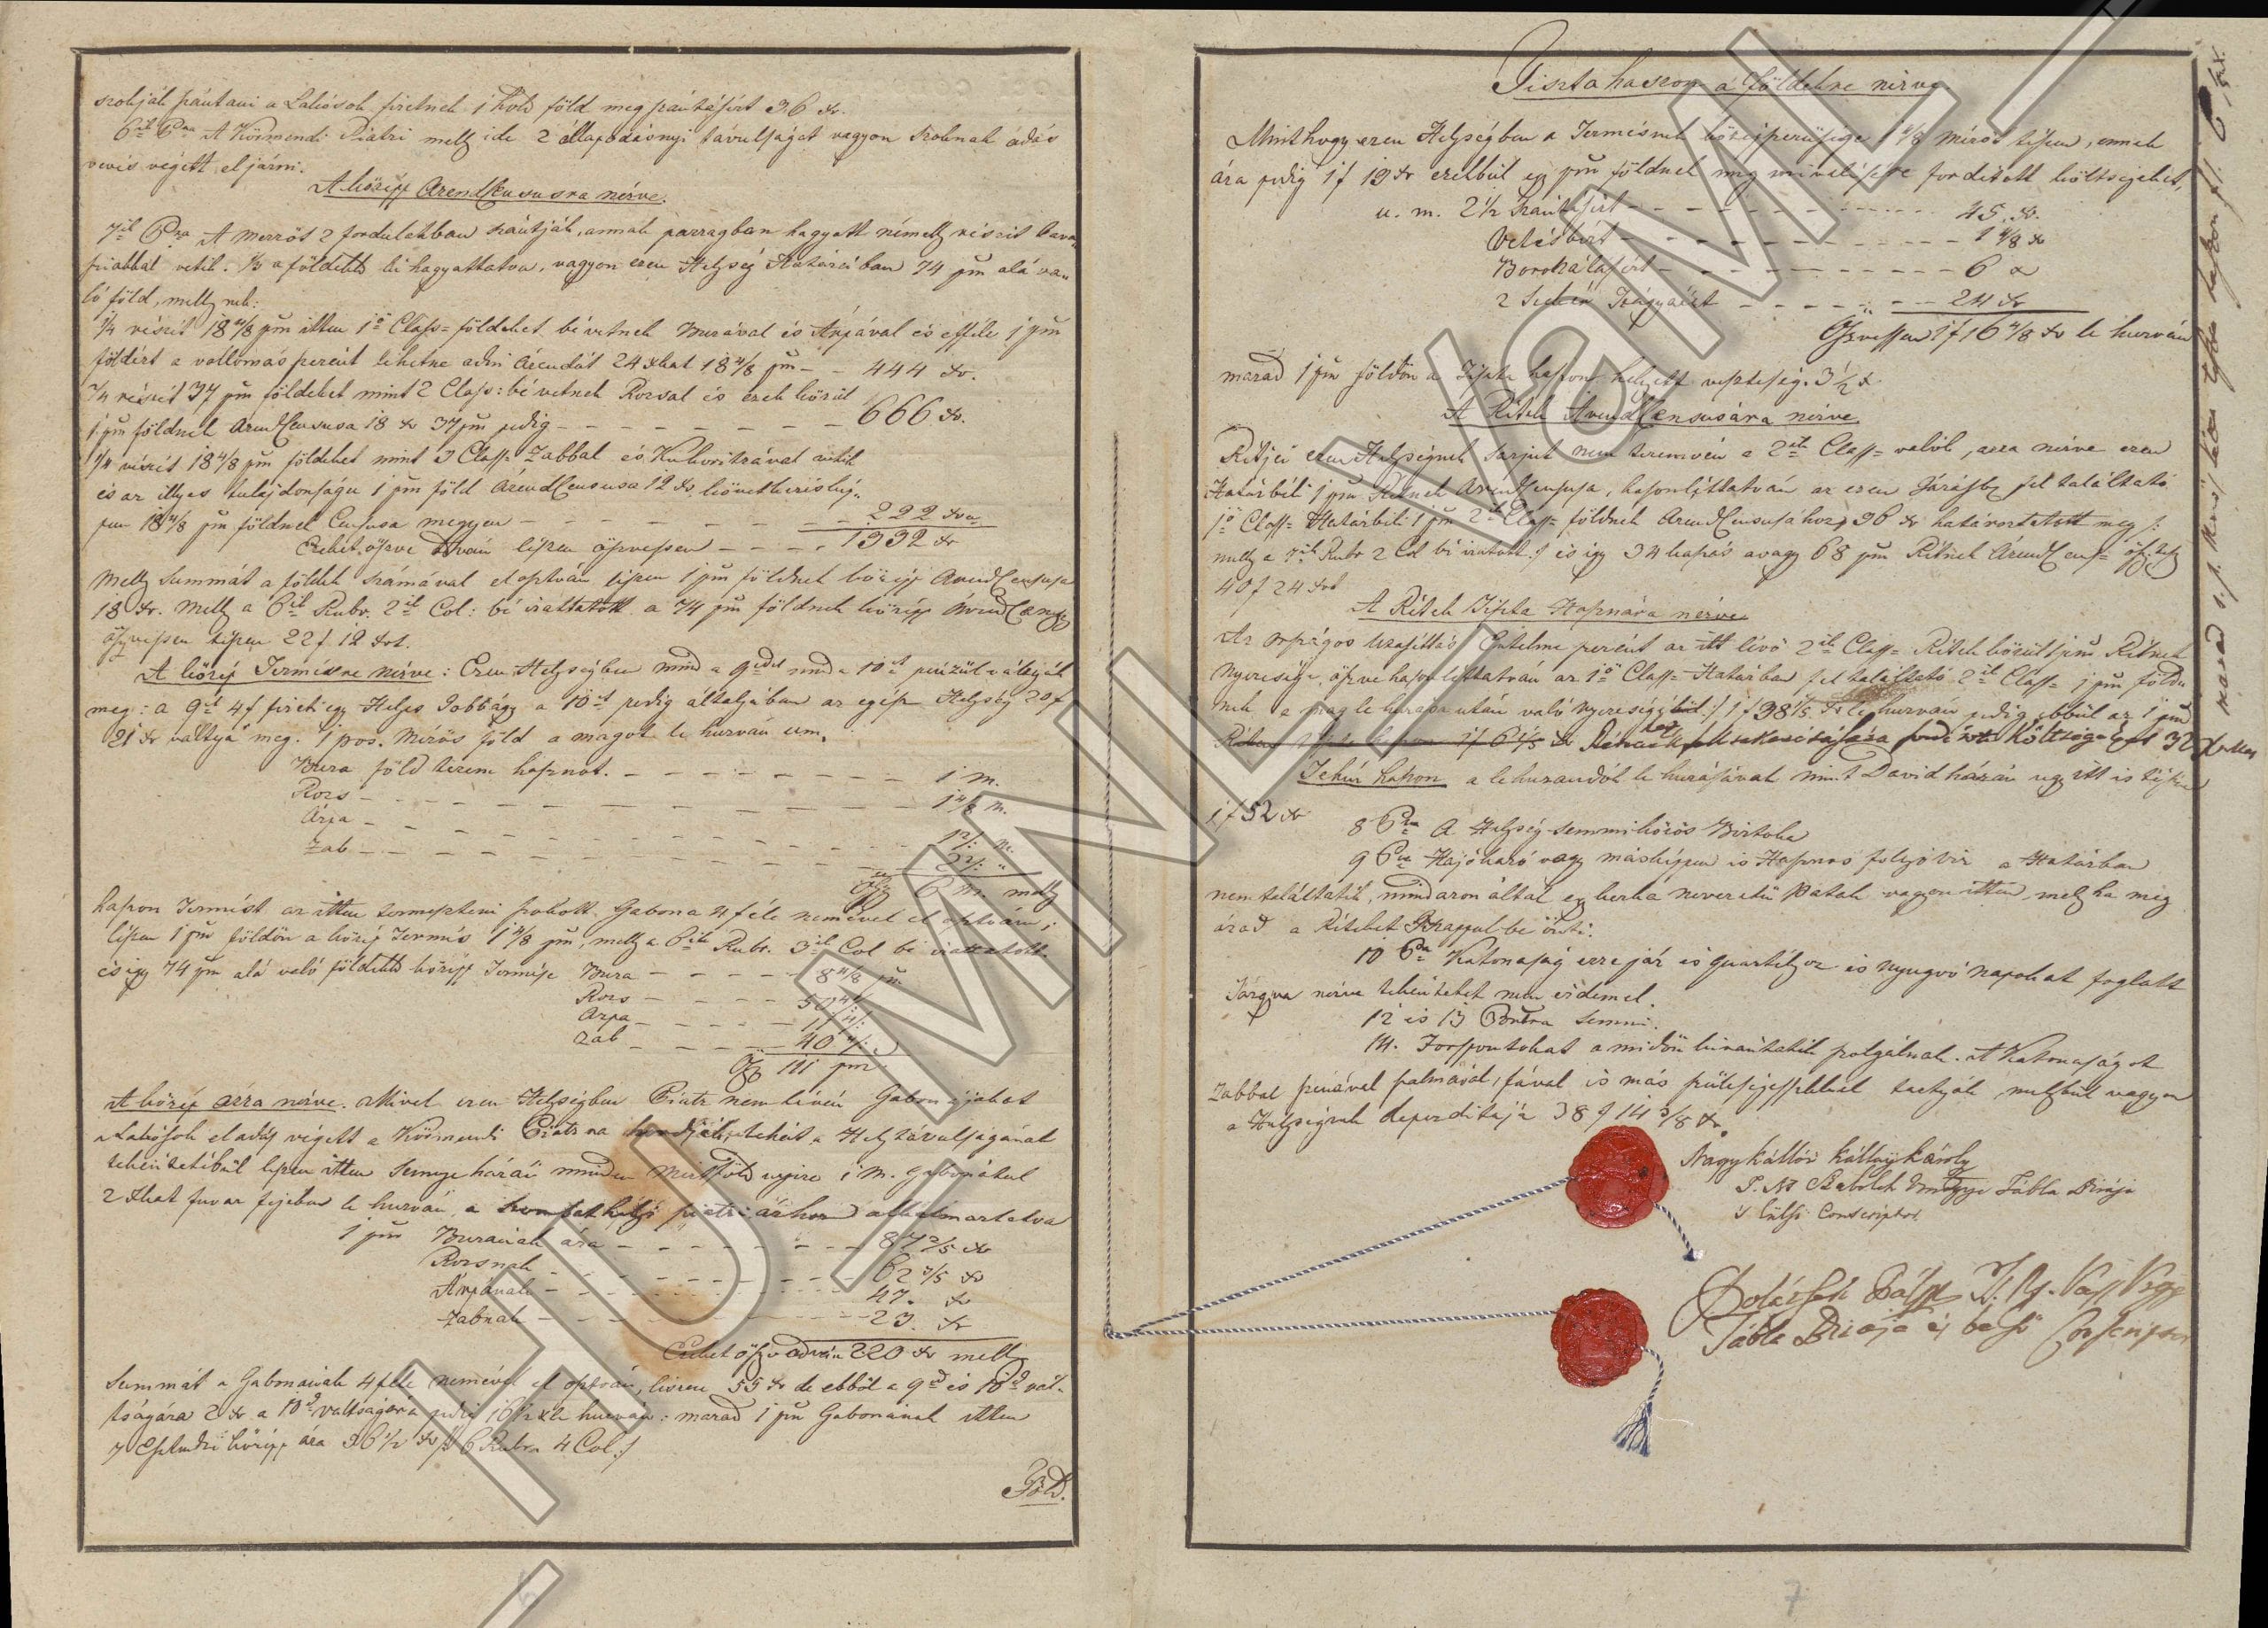 szokják szántani a Lakósok fizetnek 1 hold föld meg szántásért 36 xr.
6ik Pra A Körmendi Piatzi melly ide 2 állapodásnyi távulságot vagyon szoknak adás
vevés végett el járni.
A közép Arend Censusra nézve.
7ik Pra A mezzöt 2 fordulatban szántják, annak parragban hagyatt némelly részit tava-
sziabbal vetik. 1/3 a földekbül ki hagyattatva, vagyon ezen Helység Határában 74 pm alá va-
ló föld, melly nek:
1/4 részit 18 4/8 pm itten 1ö Class= földeket bévetnek Buzával és Árpával és efféle 1 pm
földért a vallomás szerént lehetne adni Árendát 24 xrkat 18 4/8 pm - - 444 xr.
2/4 részit 37 pm földeket mint 2 Class: bévetnek Rozsal és ezek közül
1 pm földnek Arend Censusa 18 xr 37 pm pedig - - - - - - - 666 xr.
1/4 részit 18 4/8 pm földeket mint 3 Class= Zabbal és Kukoritzával vetik
és az illyes tulajdonságu 1 pm föld Árend Censusa 12 xr. következés kép-
pen 18 4/8 pm földnek Censusa megyen - - - - - - - 222 xra
Ezeket öszve adván lészen öszvessen - - - - 1332 xr
Melly Summát a földek számával el osztván lészen 1 pm földnek közép Arend Censusa
18 xr. Melly a 6ik Rubr. 2ik Col: bé irattatott a 74 pm földnek közép Arend Census
öszvessen tészen 22 f 12 xrt.
A közép Termésre nézve: Ezen Helységben mind a 9edet mind a 10et pénzül váltyák
meg: a 9et 4 f fizeti egy Helyes Jobbágy a 10et pedig általjában az egész Helység 20 f
21 xr valttya meg. 1 pos. Mérös föld a magot le huzván um.
Buza föld térem hasznot. - - - - - - - - 1 m.
Rozs - - - - - - - - 1 4/8 m.
Árpa - - - - - - - - 1 2/: m.
Zab - - - - - - - - 2 2/: "
Öszv 6 m. melly
haszon Termést az itten termeszteni szokott Gabona 4 féle nemével el osztván;
lészen 1 pm földön a közép Termés 1 4/8 pm, melly a 6ik Rubr. 3ik Col bé irattatott.
és igy 74 pm alá való földekbül közép Termése Buza - - - - - 8 4/8 pm.
Rozs - - - - 50 4/:
Arpa - - - - 11 4/:
Zab - - - - 40 4/:
Ösz 111 pm
A közép árra nézve. Mivel ezen Helységben Piatz nem lévén Gabonájokat
a Lakósok eladás végett a Körmendi Piatzra hordják, tehát a Hely távulságának
tekéntetébül lészen itten Semnye házán minden Mértföld végire 1 m. Gabonátul
2 xrkat fuvar fejében le huzván, a Szombathelyi piatzi árhoz alkalmaztatva
1 pm Buzának ára - - - - - - - 87 2/5 xr
Rozsnak - - - - - - - 62 3/5 xr
Árpának - - - - - - - 47. xr
Zabnak - - - - - - - 23. xr
Ezeket öszve adván 220 xr melly
Summát a Gabonának 4 féle nemével el osztván, lészen 55 xr de ebböl a 9ed és 10ed vál-
tságára 2 xr a 10ed váltságára pedig 16 1/2 xr le huzván: marad 1 pm Gabonának itten
7 Esztendei közép ára 36 1/2 xr /: 6 Rubr. 4 Col :/
Föld.
Tiszta haszon a földekre nézve
Mint hogy ezen Helységben a Termésnek közép szerüsége 1 4/8 Mérőt tészen, ennek
ára pedig 1 f 19 xr ezekbül egy pm földnek meg mivelésére forditott költségeket,
u. m. 2 1/2 szántásért - - - - - - - 45. xr.
Vetésbért - - - - - - - 1 4/8 xr
Boronálásért - - - - - - - 6 xr
2 Szekér Trágyáért - - - - - - - 24 xr
Öszvessen 1 f 16 4/8 xr le huzván
marad 1 pm földön a Tiszta haszon helyett veszteség. 3 1/2 xr
A Rétek Arend Censusára nézve
Rétjei ezen Helységnek Sarjut nem teremvén a 2ik Class= valók, azra nézve ezen
Határbéli 1 pm Rétnek Arend Censusa, hasonlíttatván az ezen Járásban fel találtató
1ö Class= Határbeli 1 pm 2ik Class= földnek Arend Censusához, 36 xr határoztatott meg /:
melly a 7ik Rubr 2 Col bé iratott :/ és igy 34 kaszás avagy 68 pm Rétnek Árend Cens= öszveteszen
40 f 24 xrt
A Rétek Tiszta Hasznára nézve.
Az Országos Utasíttás Értelme szerént az itt lévö 2ik Class= Rétek közül 1 pm Rétnek
Nyeresége, öszve hasonlíttatván az 1ö Class= Határban fel találtató 2ik Class= 1 pm földe
nek a mag le huzása után való nyereségi 1 f 38 1/5 xr le huzván pedig ebbül az 1 pm
Rétnek fell takaríttására fordított Költségeket 32 xrokat
marad s. f. Meröl Réten Tiszta haszon f 1. 6 1/5 xr.
Tehén haszon a lehuzandók le huzásával mint David házán ugy itt is tészen
1 f 52 xr
8 Pra A Helység semmi közös Birtoka
9 Pra Hajókázó vagy másképpen is Hasznos folyóviz a Határban
nem találtatik, mindazon által egy herka nevezetü Patak vagyon itten, mely ha meg
árad a Réteket Iszappal be önti.
10 Pra Katonaság erre jár és quartélyoz és nyugvó napokat foglalt
Tárgyra nézve tekéntetet nem érdemel.
12 és 13 Pontra Semmi.
14. Forspontokat a midön kivántatik szolgálnak. A Katonaságot
Zabbal szénával szalmával, fával és más szükségesekkel tartják mellybül vagyon
a Helységnek deperditája 38 f 14 3/8 xr.
Nagy Kállói Kállay Károly
T. N. Szabolch Vmegye Tábla Birája
s külsö Conscriptor.
T. N. Vass Vrgye
Tábla Birája és belsö Conscriptor
7
HU MNL VaML